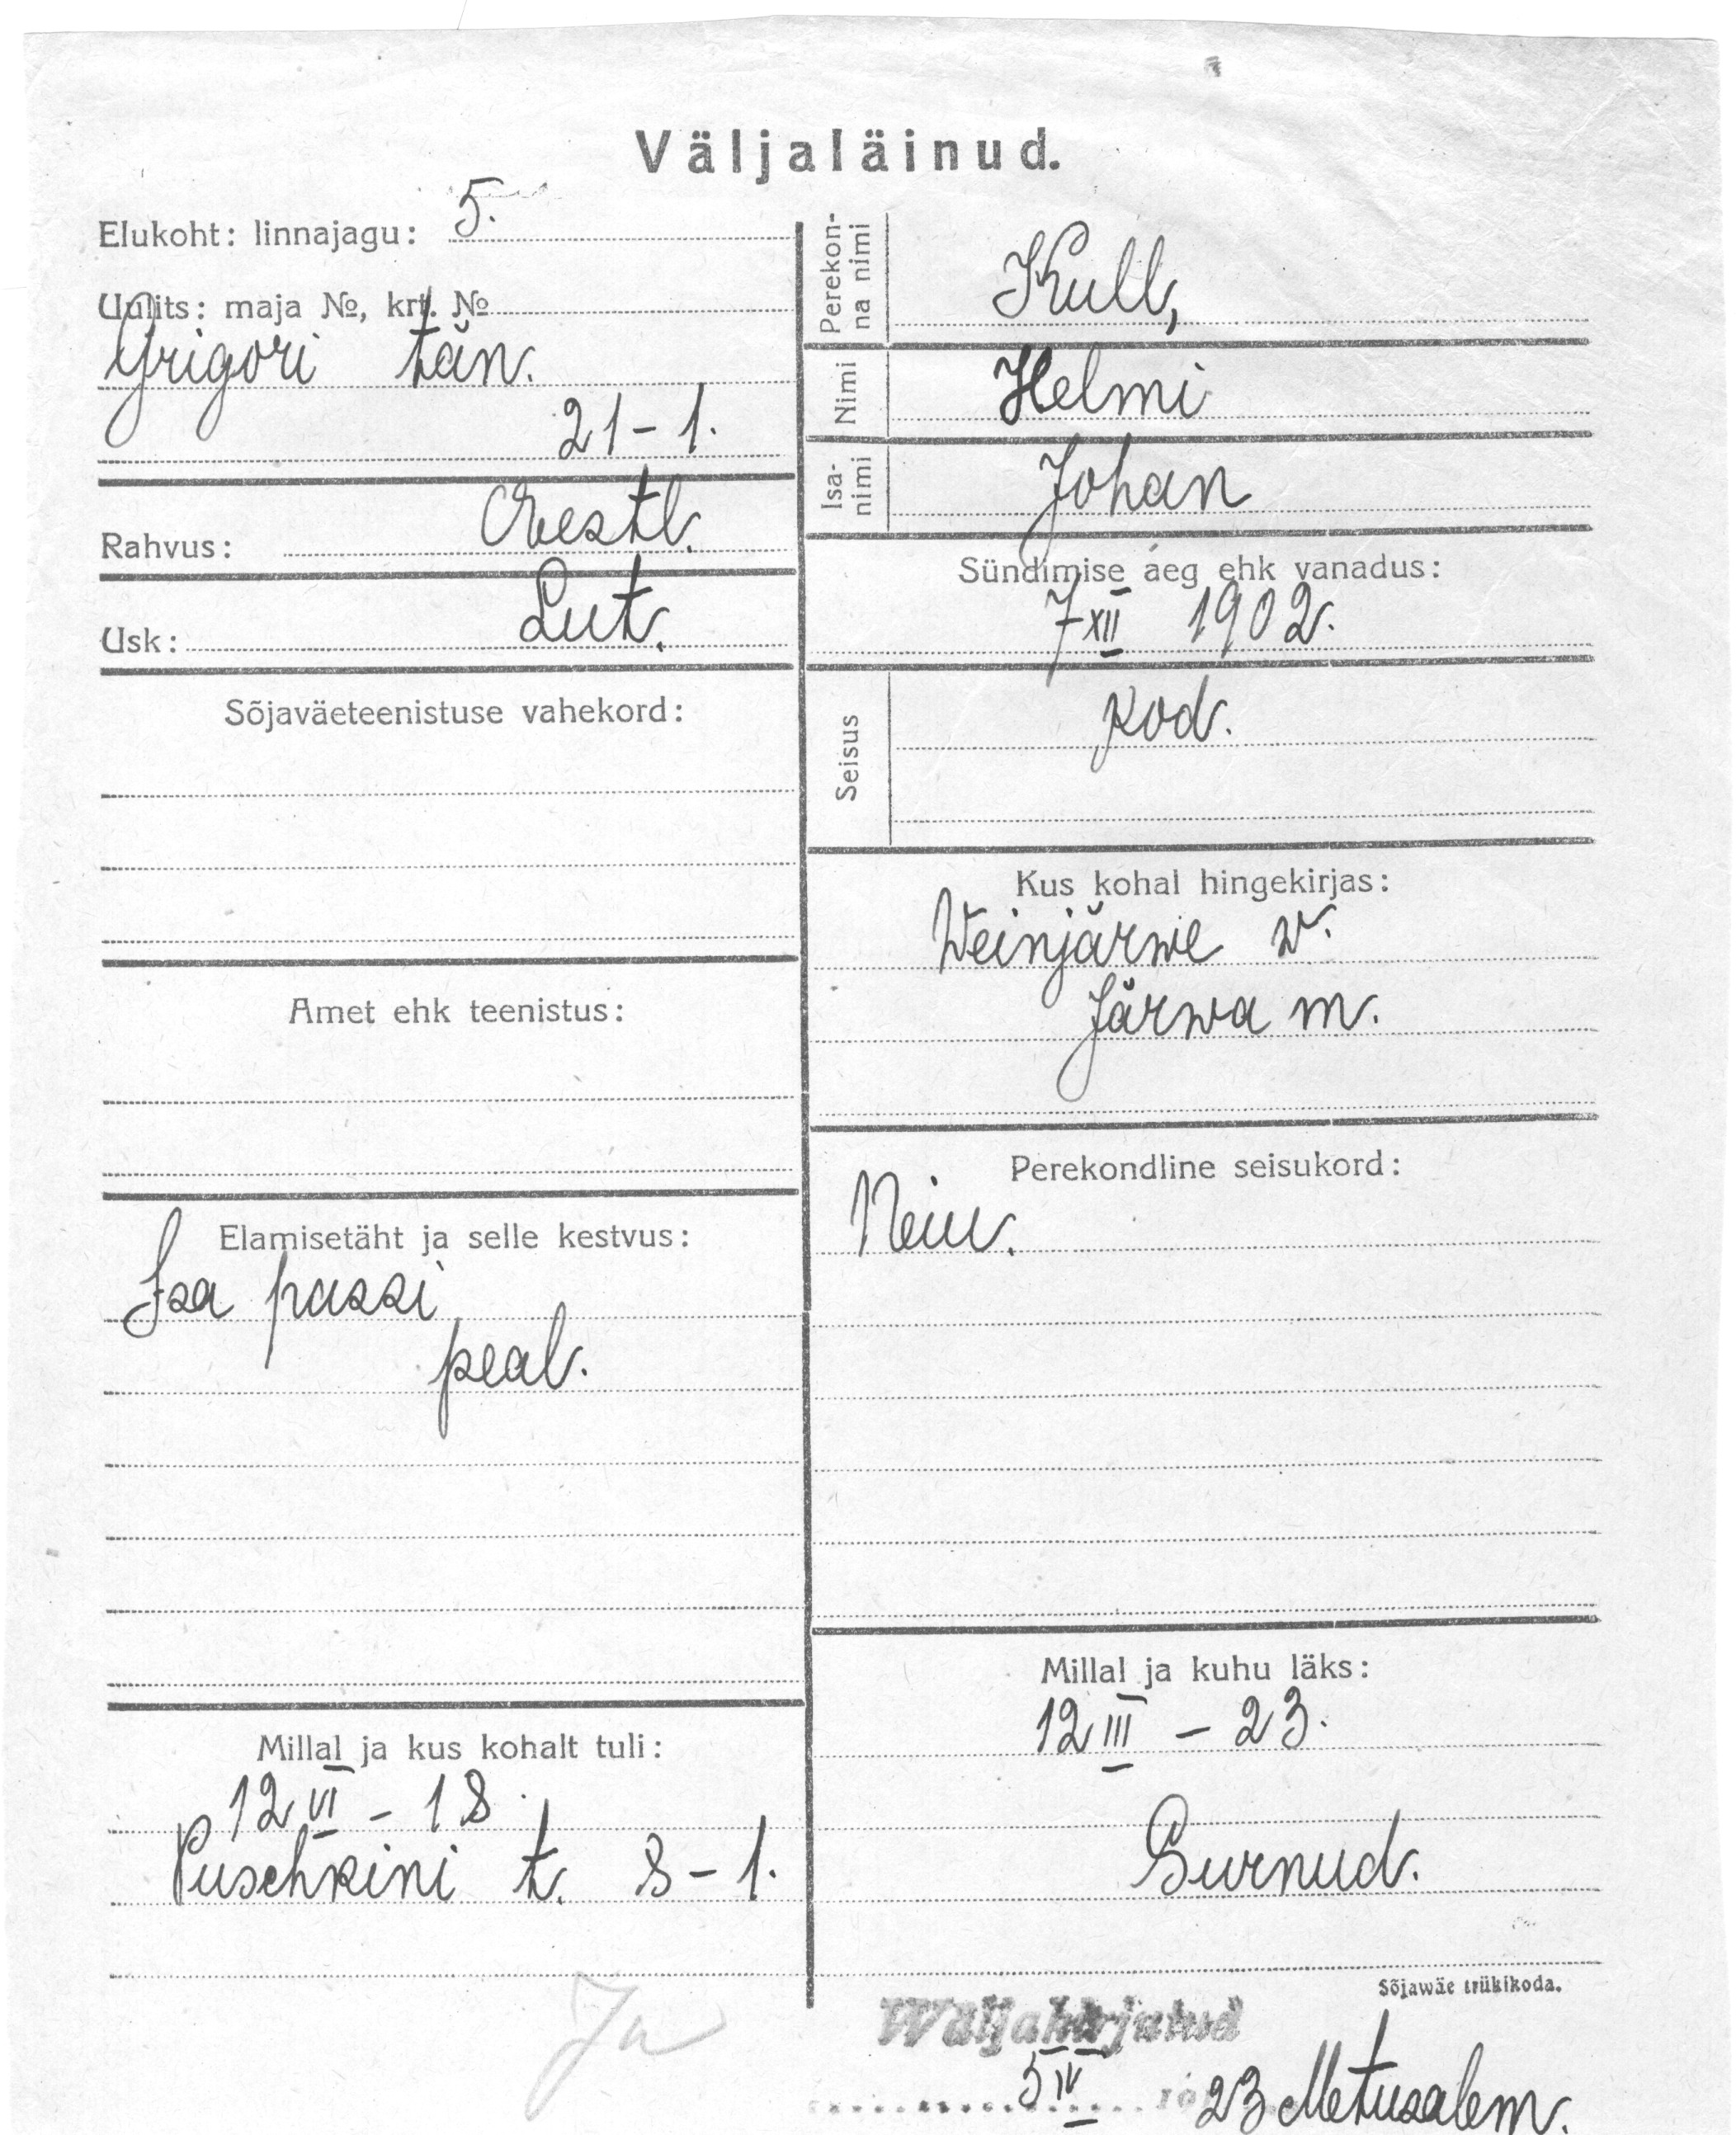 Väljaläinud.
Elukoht: linnajagu: 5.
Uulits: maja №, krt. №
Grigori tän.
21-1.
Rahvus: Eestl.
Usk: Lut.
Sõjaväeteenistuse vahekord:
Amet ehk teenistus:
Elamisetäht ja selle kestvus:
Isa passi
peal.
Millal ja kus kohalt tuli:
12 VI - 18.
Puschkini t. 8-1.
Perekon-
na nimi
Kull,
Nimi Helmi
Isa-
nimi
Johan
Sündimise aeg ehk vanadus:
7 XII 1902.
Seisus kod.
Kus kohal hingekirjas:
Weinjärwe w.
Järwa m.
Perekondline seisukord:
Neiu.
Millal ja kuhu läks:
12 III - 23.
Surnud.
Sõjawäe trükikoda.
Wäljakirjutud
5 IV 23 Metusalem.